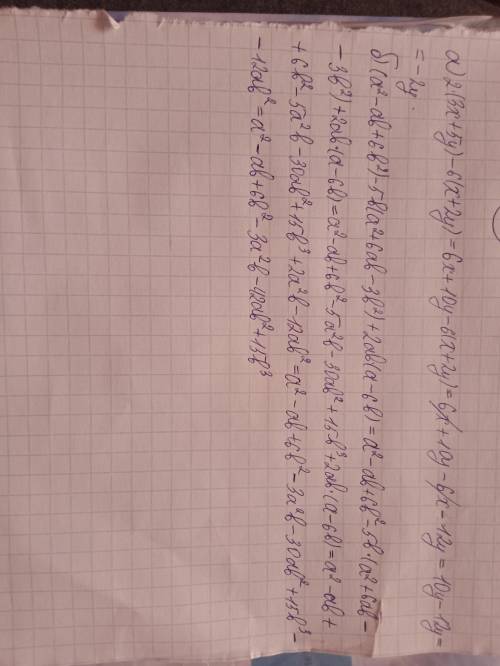 а) 2(3x+5y)-6(x+2y)=6x+10y-6(x+2y)=6x+10y-6x-12y=10y-12y=
=-2y.
б) (a²-ab+6b²)-5b(a²+6ab-3b²)+2ab(a-6b)=a²-ab+6b²-5b·(a²+6ab-
-3b²)+2ab·(a-6b)=a²-ab+6b²-5a²b-30ab²+15b³+2ab·(a-6b)=a²-ab+
+6b²-5a²b-30ab²+15b³+2a²b-12ab²=a²-ab+6b²-3a²b-30ab²+15b³-
-12ab²=a²-ab+6b²-3a²b-42ab²+15b³